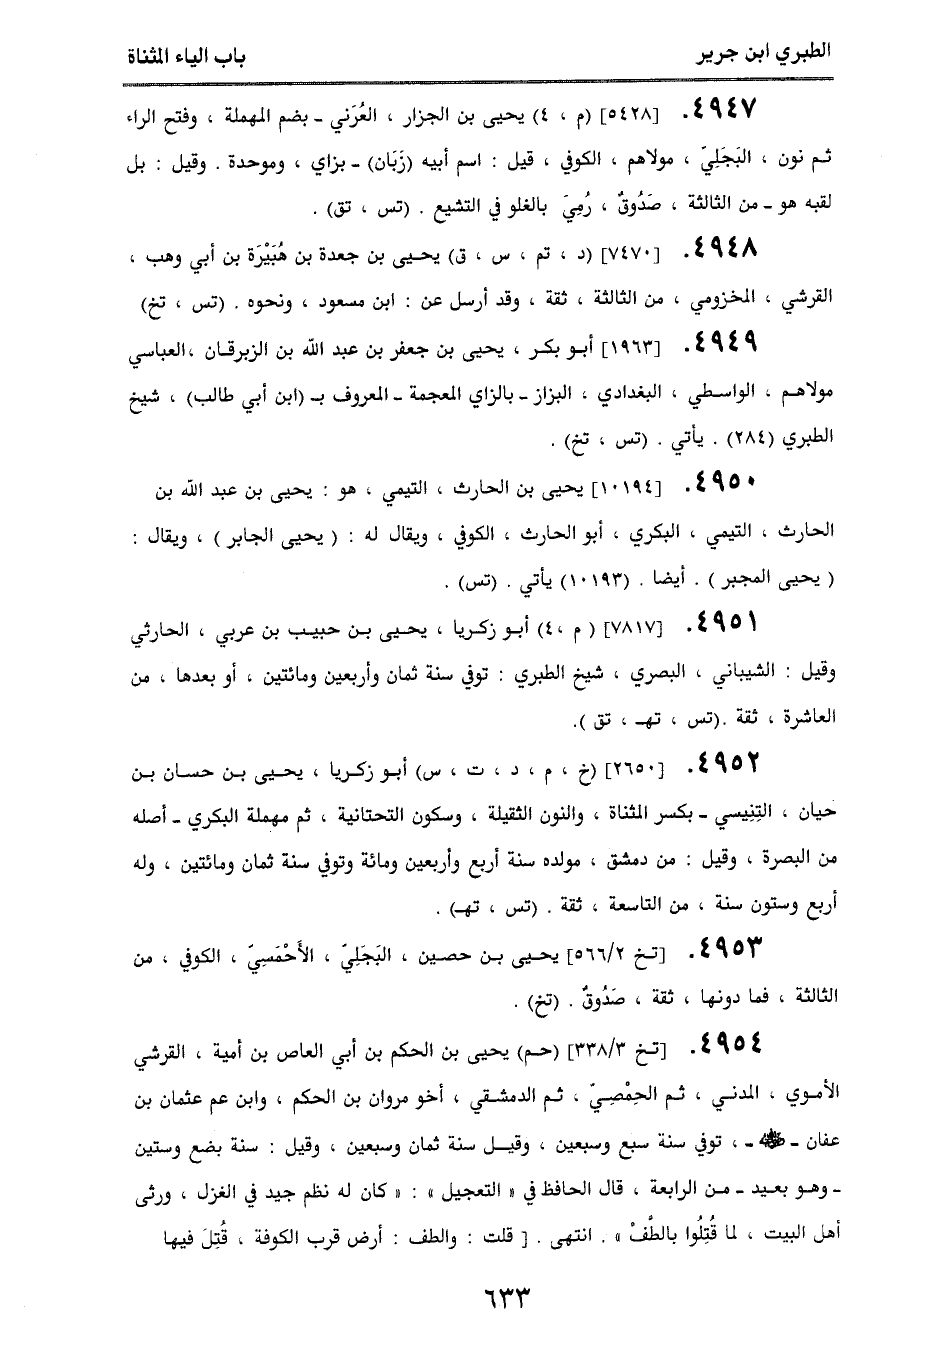 الطبري ابن جرير
باب الياء المثناة
٤٩٤٧. [٥٤٢٨] (م ، ٤) يحيى بن الجزار ، العُرَني ـ بضم المهملة ، وفتح الراء
ثم نون ، البَجَلِيّ ، مولاهم ، الكوفي ، قيل : اسم أبيه (زَبَان) ـ بزاي ، وموحدة . وقيل : بل
لقبه هو ـ من الثالثة ، صَدُوقٌ ، رُمِيَ بالغلو في التشيع . (تس ، تق) .
٤٩٤٨. [٧٤٧٠] (د ، تم ، س ، ق) يحيى بن جعدة بن هُبَيْرَة بن أبي وهب ،
القرشي ، المخزومي ، من الثالثة ، ثقة ، وقد أرسل عن : ابن مسعود ، ونحوه . (تس ، تخ)
٤٩٤٩. [١٩٦٣] أبو بكر ، يحيى بن جعفر بن عبد الله بن الزبرقان ،العباسي
مولاهم ، الواسطي ، البغدادي ، البزاز ـ بالزاي المعجمة ـ المعروف بـ (ابن أبي طالب) ، شيخ
الطبري (٢٨٤) . يأتي . (تس ، تخ) .
٤٩٥٠. [١٠١٩٤] يحيى بن الحارث ، التيمي ، هو : يحيى بن عبد الله بن
الحارث ، التيمي ، البكري ، أبو الحارث ، الكوفي ، ويقال له : ( يحيى الجابر ) ، ويقال :
( يحيى المجبر ) . أيضا . (١٠١٩٣) يأتي . (تس) .
٤٩٥١. [٧٨١٧] ( م ،٤) أبو زكريا ، يحيى بن حبيب بن عربي ، الحارثي
وقيل : الشيباني ، البصري ، شيخ الطبري : توفي سنة ثمان وأربعين ومائتين ، أو بعدها ، من
العاشرة ، ثقة .(تس ، تهـ ، تق ).
٤٩٥٢. [٢٦٥٠] (خ ، م ، د ، ت ، س) أبو زكريا ، يحيى بن حسان بن
حيان ، التِنِيسي ـ بكسر المثناة ، والنون الثقيلة ، وسكون التحتانية ، ثم مهملة البكري ـ أصله
من البصرة ، وقيل : من دمشق ، مولده سنة أربع وأربعين ومائة وتوفي سنة ثمان ومائتين ، وله
أربع وستون سنة ، من التاسعة ، ثقة . (تس ، تهـ) .
٤٩٥٣. [تخ ٥٦٦/٢] يحيى بن حصين ، البَجَلِيّ ، الأَحْمَسِيّ ، الكوفي ، من
الثالثة ، فما دونها ، ثقة ، صَدُوقٌ . (تخ) .
٤٩٥٤. [تخ ٣٣٨/٣] (حم) يحيى بن الحكم بن أبي العاص بن أمية ، القرشي
الأموي ، المدني ، ثم الحِمْصِيّ ، ثم الدمشقي ، أخو مروان بن الحكم ، وابن عم عثمان بن
عفان ـ ﷺ ـ ، توفي سنة سبع وسبعين ، وقيل سنة ثمان وسبعين ، وقيل : سنة بضع وستين
ـ وهو بعيد ـ من الرابعة ، قال الحافظ في « التعجيل » : « كان له نظم جيد في الغزل ، ورثى
أهل البيت ، لما قُتِلُوا بالطَّفْ » . انتهى . [ قلت : والطف : أرض قرب الكوفة ، قُتِلَ فيها
٦٣٣